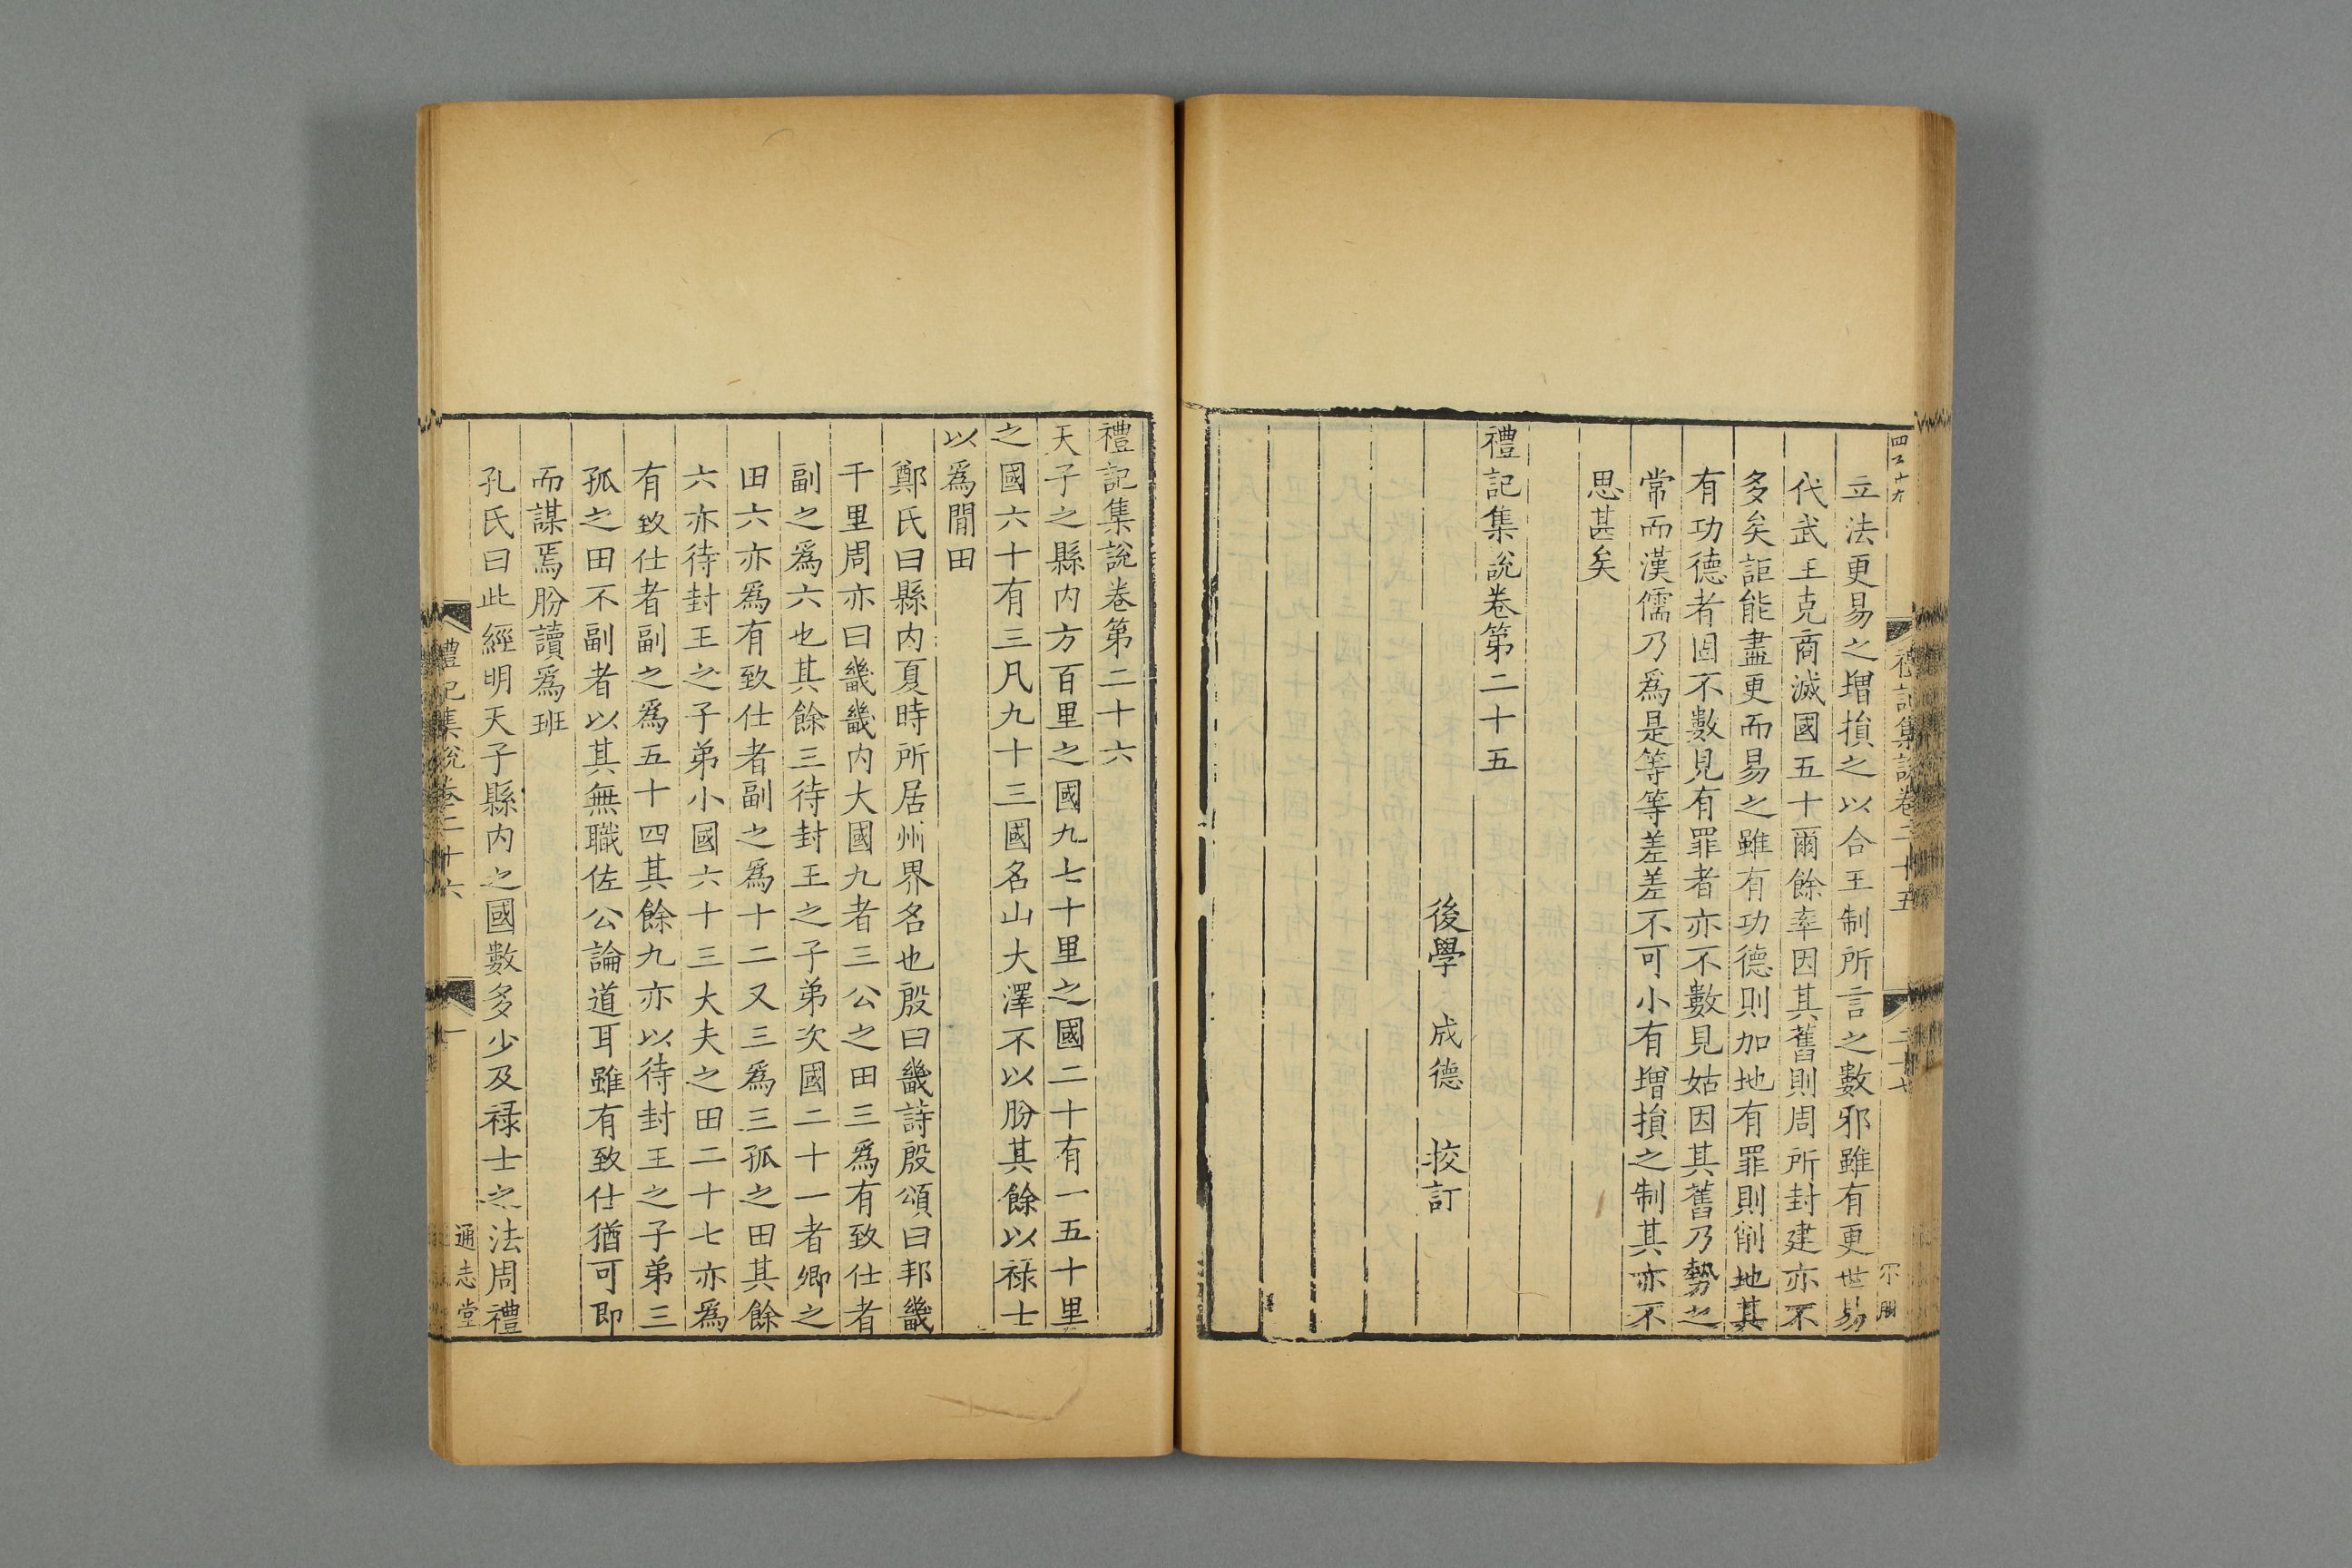 禮記集說卷二十五
立法更易之增損之以合王制所言之數邪雖有更世易
代武王克商滅國五十爾餘率因其舊則周所封建亦不
多矣詎能盡更而易之雖有功德則加地有罪則削地其
有功德者固不數見有罪者亦不數見姑因其舊乃勢之
常而漢儒乃爲是等等差差不可小有增損之制其亦不
思甚矣
禮記集說卷第二十五
後學 成德 挍訂
禮記集說卷第二十六
天子之縣内方百里之國九七十里之國二十有一五十里
之國六十有三凡九十三國名山大澤不以朌其餘以祿士
以爲閒田
鄭氏曰縣内夏時所居州界名也殷曰畿詩殷頌曰邦畿
千里周亦曰畿畿内大國九者三公之田三爲有致仕者
副之爲六也其餘三待封王之子弟次國二十一者卿之
田六亦爲有致仕者副之爲十二又三爲三孤之田其餘
六亦待封王之子弟小國六十三大夫之田二十七亦爲
有致仕者副之爲五十四其餘九亦以待封王之子弟三
孤之田不副者以其無職佐公論道耳雖有致仕猶可即
而謀焉朌讀爲班
孔氏曰此經明天子縣内之國數多少及祿士之法周禮
禮記集說卷二十六 一 通志堂